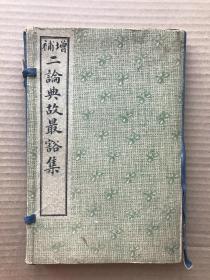 增補
二論典故最豁集